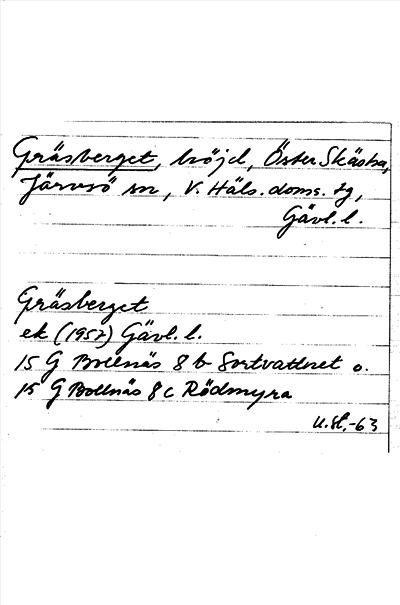 Gräsberget, höjd, Öster Skästra,
Järvsö sn, V. Häls. doms. tg,
Gävl. l.
Gräsberget
ek (1957) Gävl. l.
15 G Bollnäs 8 b Sortvattnet o.
15 G Bollnäs 8 c Rödmyra
U.St.-63